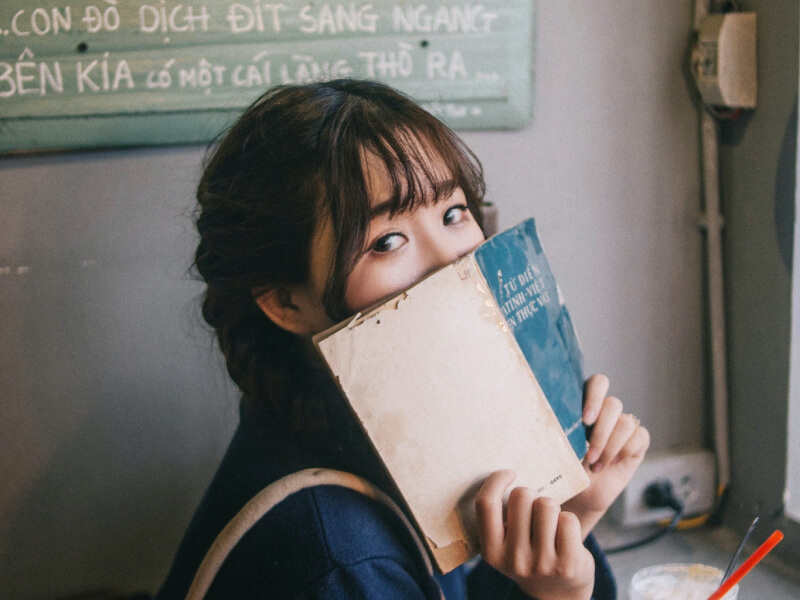 ...CON ĐÒ DỊCH ĐÍT SANG NGANG
BÊN KÍA CÓ MỘT CÁI LÀNG THÒ RA...
TỪ ĐIỂN
LATINH-VIỆT
TÊN THỰC VẬT